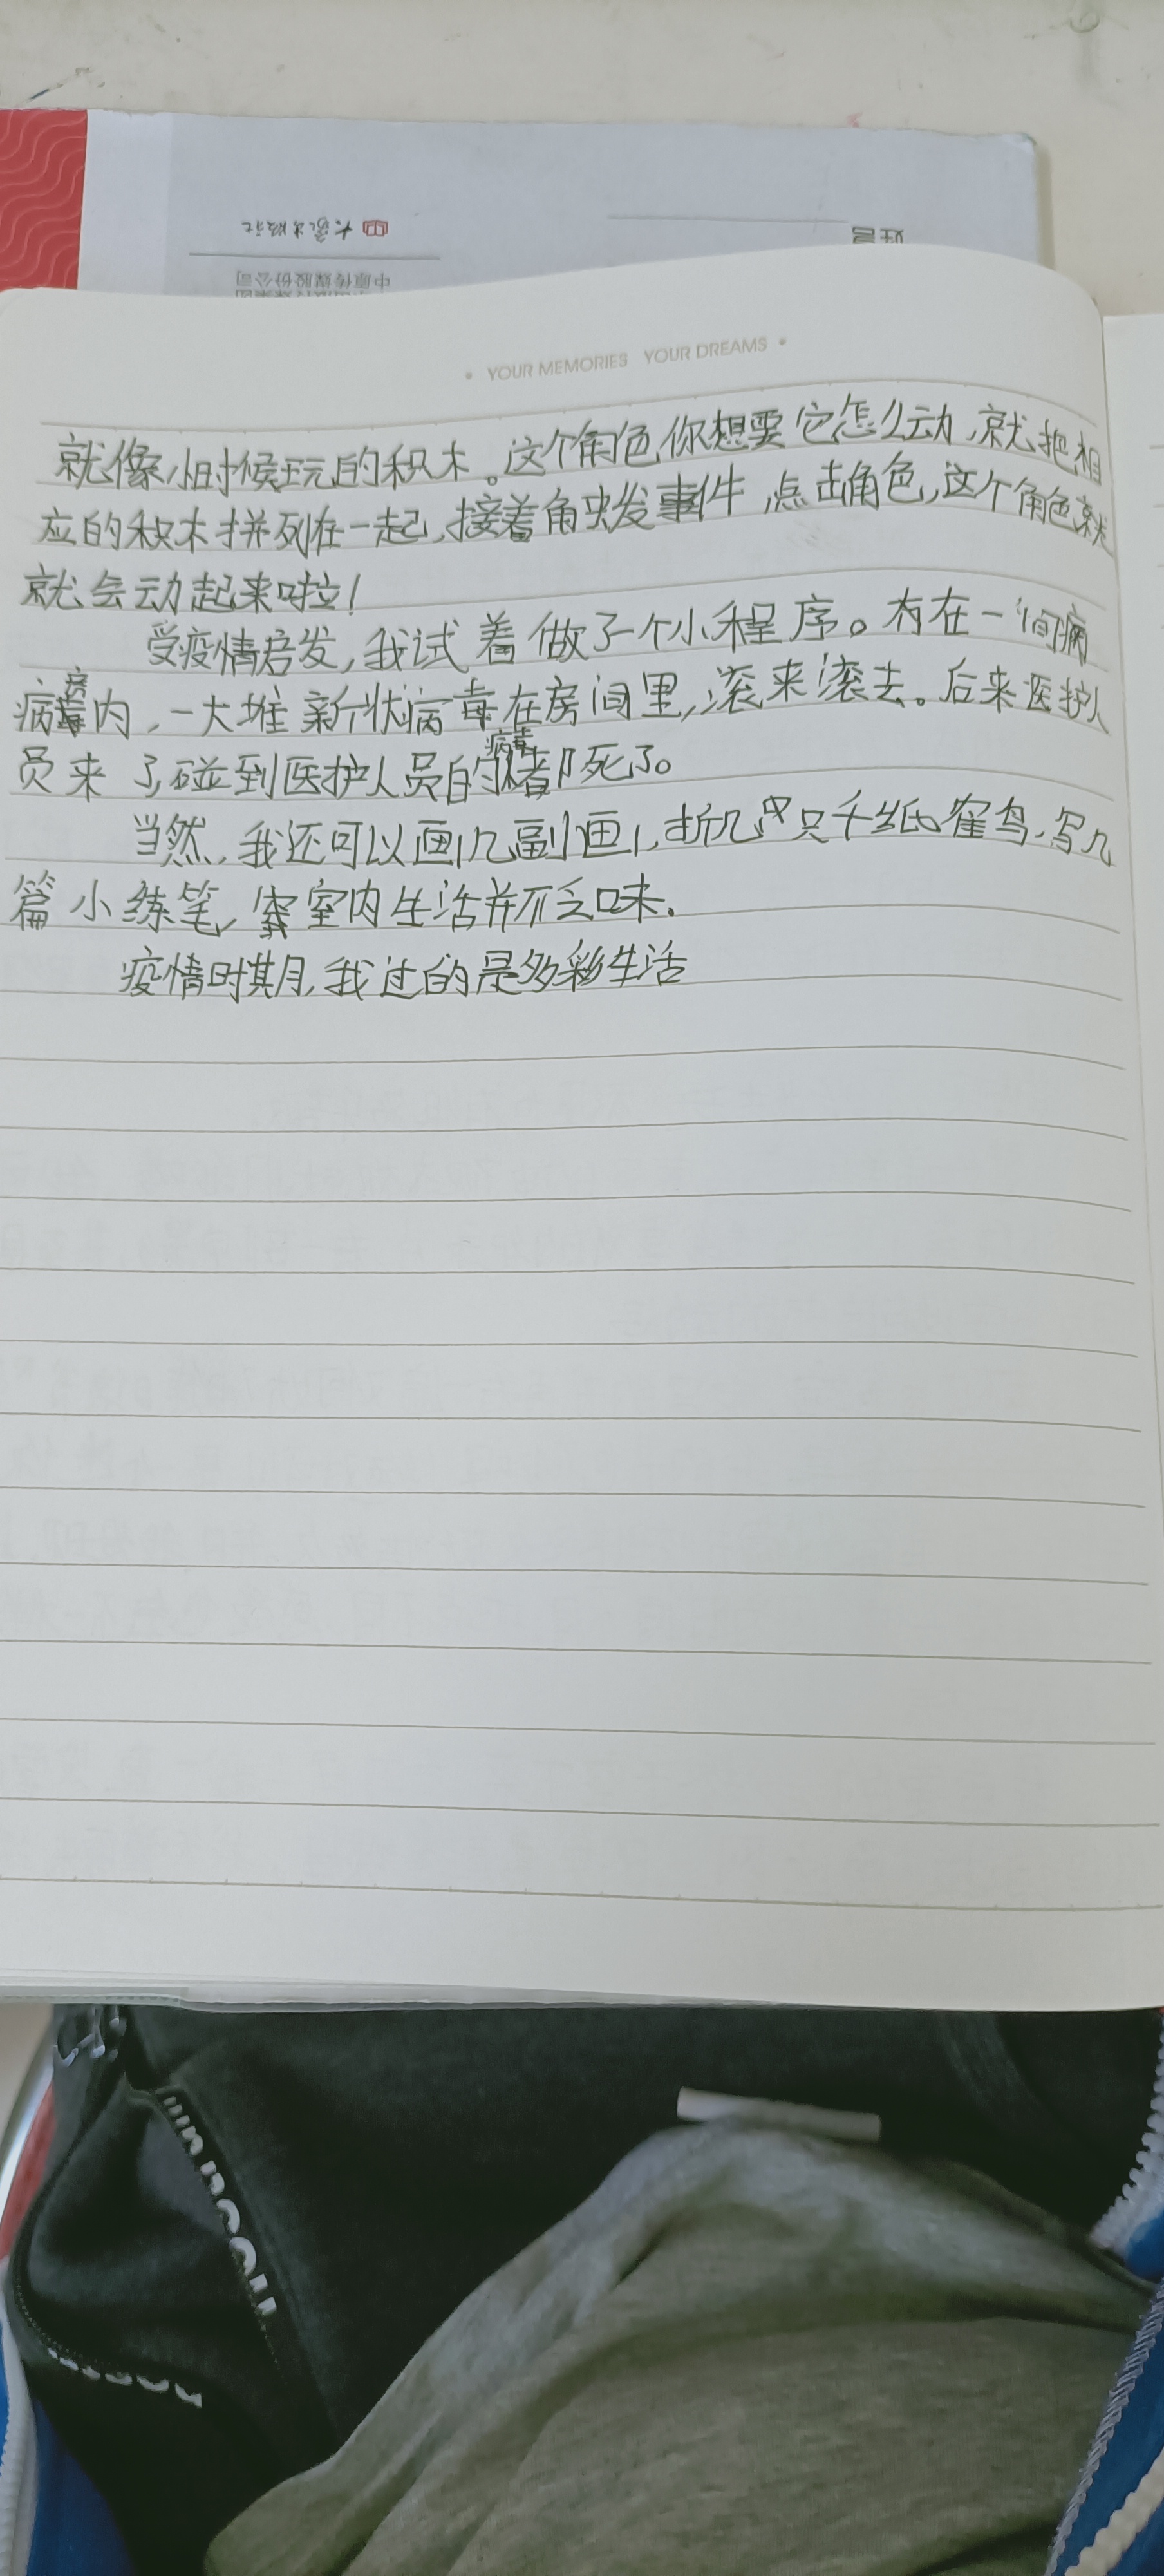 大象出版社
姓名
中原传媒股份公司
• YOUR MEMORIES YOUR DREAMS •
就像小时候玩的积木。这个角色你想要它怎么动,就把相
应的积木拼列在一起,接着角虫发事件,点击角色,这个角色就
就会动起来啦!
受疫情启发,我试着做了一个小程序。在一间病
病房内,一大堆新状病毒在房间里,滚来滚去。后来医护人
员来了,碰到医护人员的病毒都死了。
当然,我还可以画几副画,折几只千纸鹤,写几
篇小练笔,室内生活并不乏味.
疫情时期,我过的是多彩生活